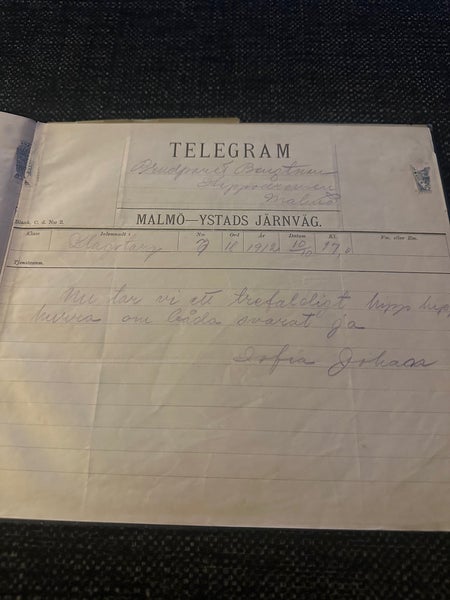 TELEGRAM
Brudparet
Hippodromen
Malmö
Blank. C. d. N:o 2.
MALMÖ—YSTADS JÄRNVÄG.
Klass Inlemnadt i N:o Ord År Datum Kl. Fm. eller Em.
18 1912 10/10 17
Tjenstanm.
Nu tar vi ett trefaldigt hipp hipp
hurra om båda svarat ja
Sofia Johan